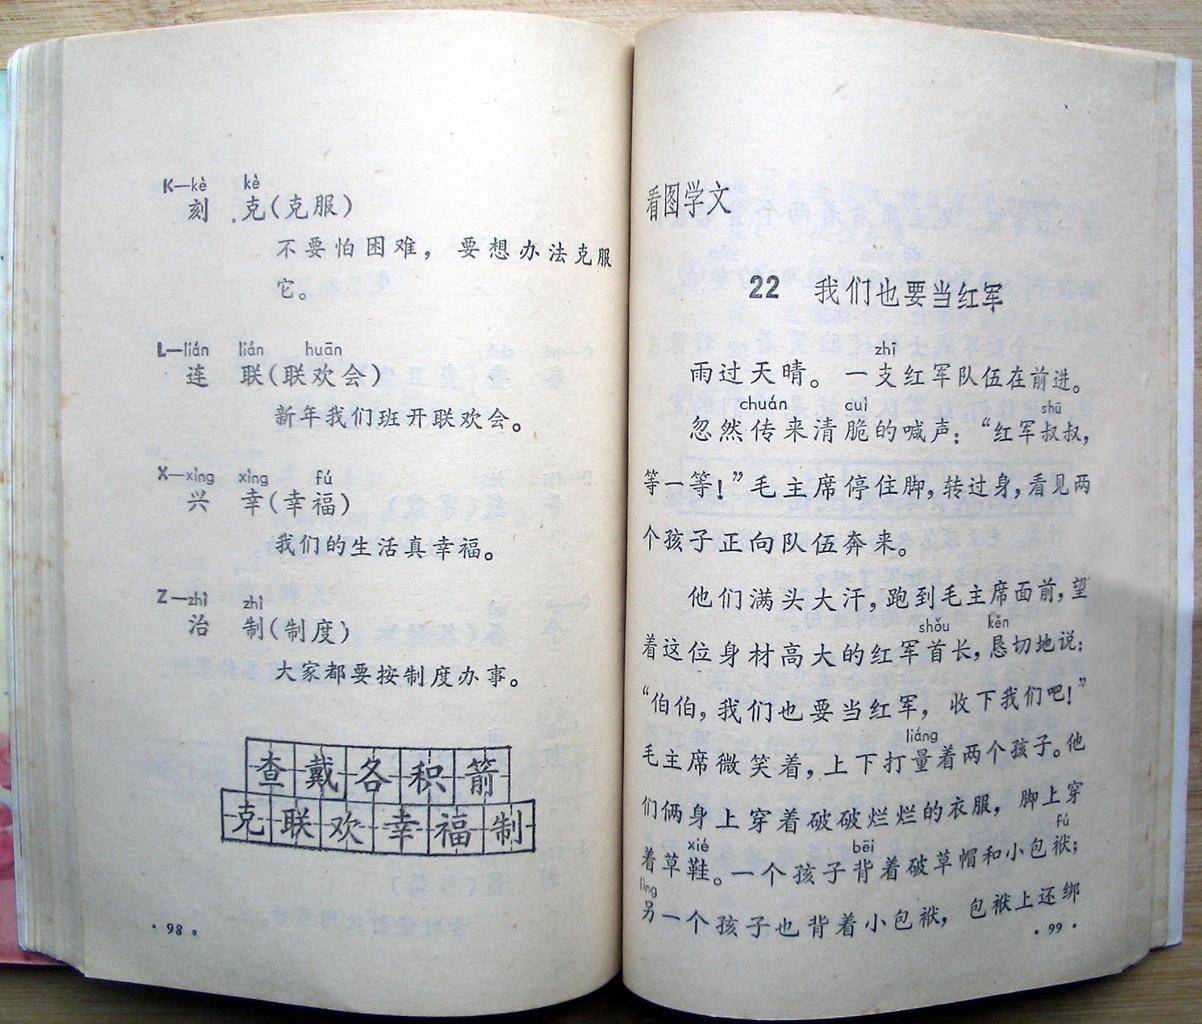 K—kè kè
刻 克(克服)
不要怕困难，要想办法克服
它。
L—lián lián huān
连 联(联欢会)
新年我们班开联欢会。
X—xìng xìng fú
兴 幸(幸福)
我们的生活真幸福。
Z—zhì zhì
治 制(制度)
大家都要按制度办事。
查戴各积箭
克联欢幸福制
·98·
看图学文
22 我们也要当红军
zhī
雨过天晴。一支红军队伍在前进。
chuán cuì shū
忽然传来清脆的喊声：“红军叔叔，
等一等！”毛主席停住脚，转过身，看见两
个孩子正向队伍奔来。
他们满头大汗，跑到毛主席面前，望
shǒu kěn
着这位身材高大的红军首长，恳切地说：
“伯伯，我们也要当红军，收下我们吧！”
liáng
毛主席微笑着，上下打量着两个孩子。他
们俩身上穿着破破烂烂的衣服，脚上穿
xié bēi fú
着草鞋。一个孩子背着破草帽和小包袱；
lìng
另一个孩子也背着小包袱，包袱上还绑
·99·